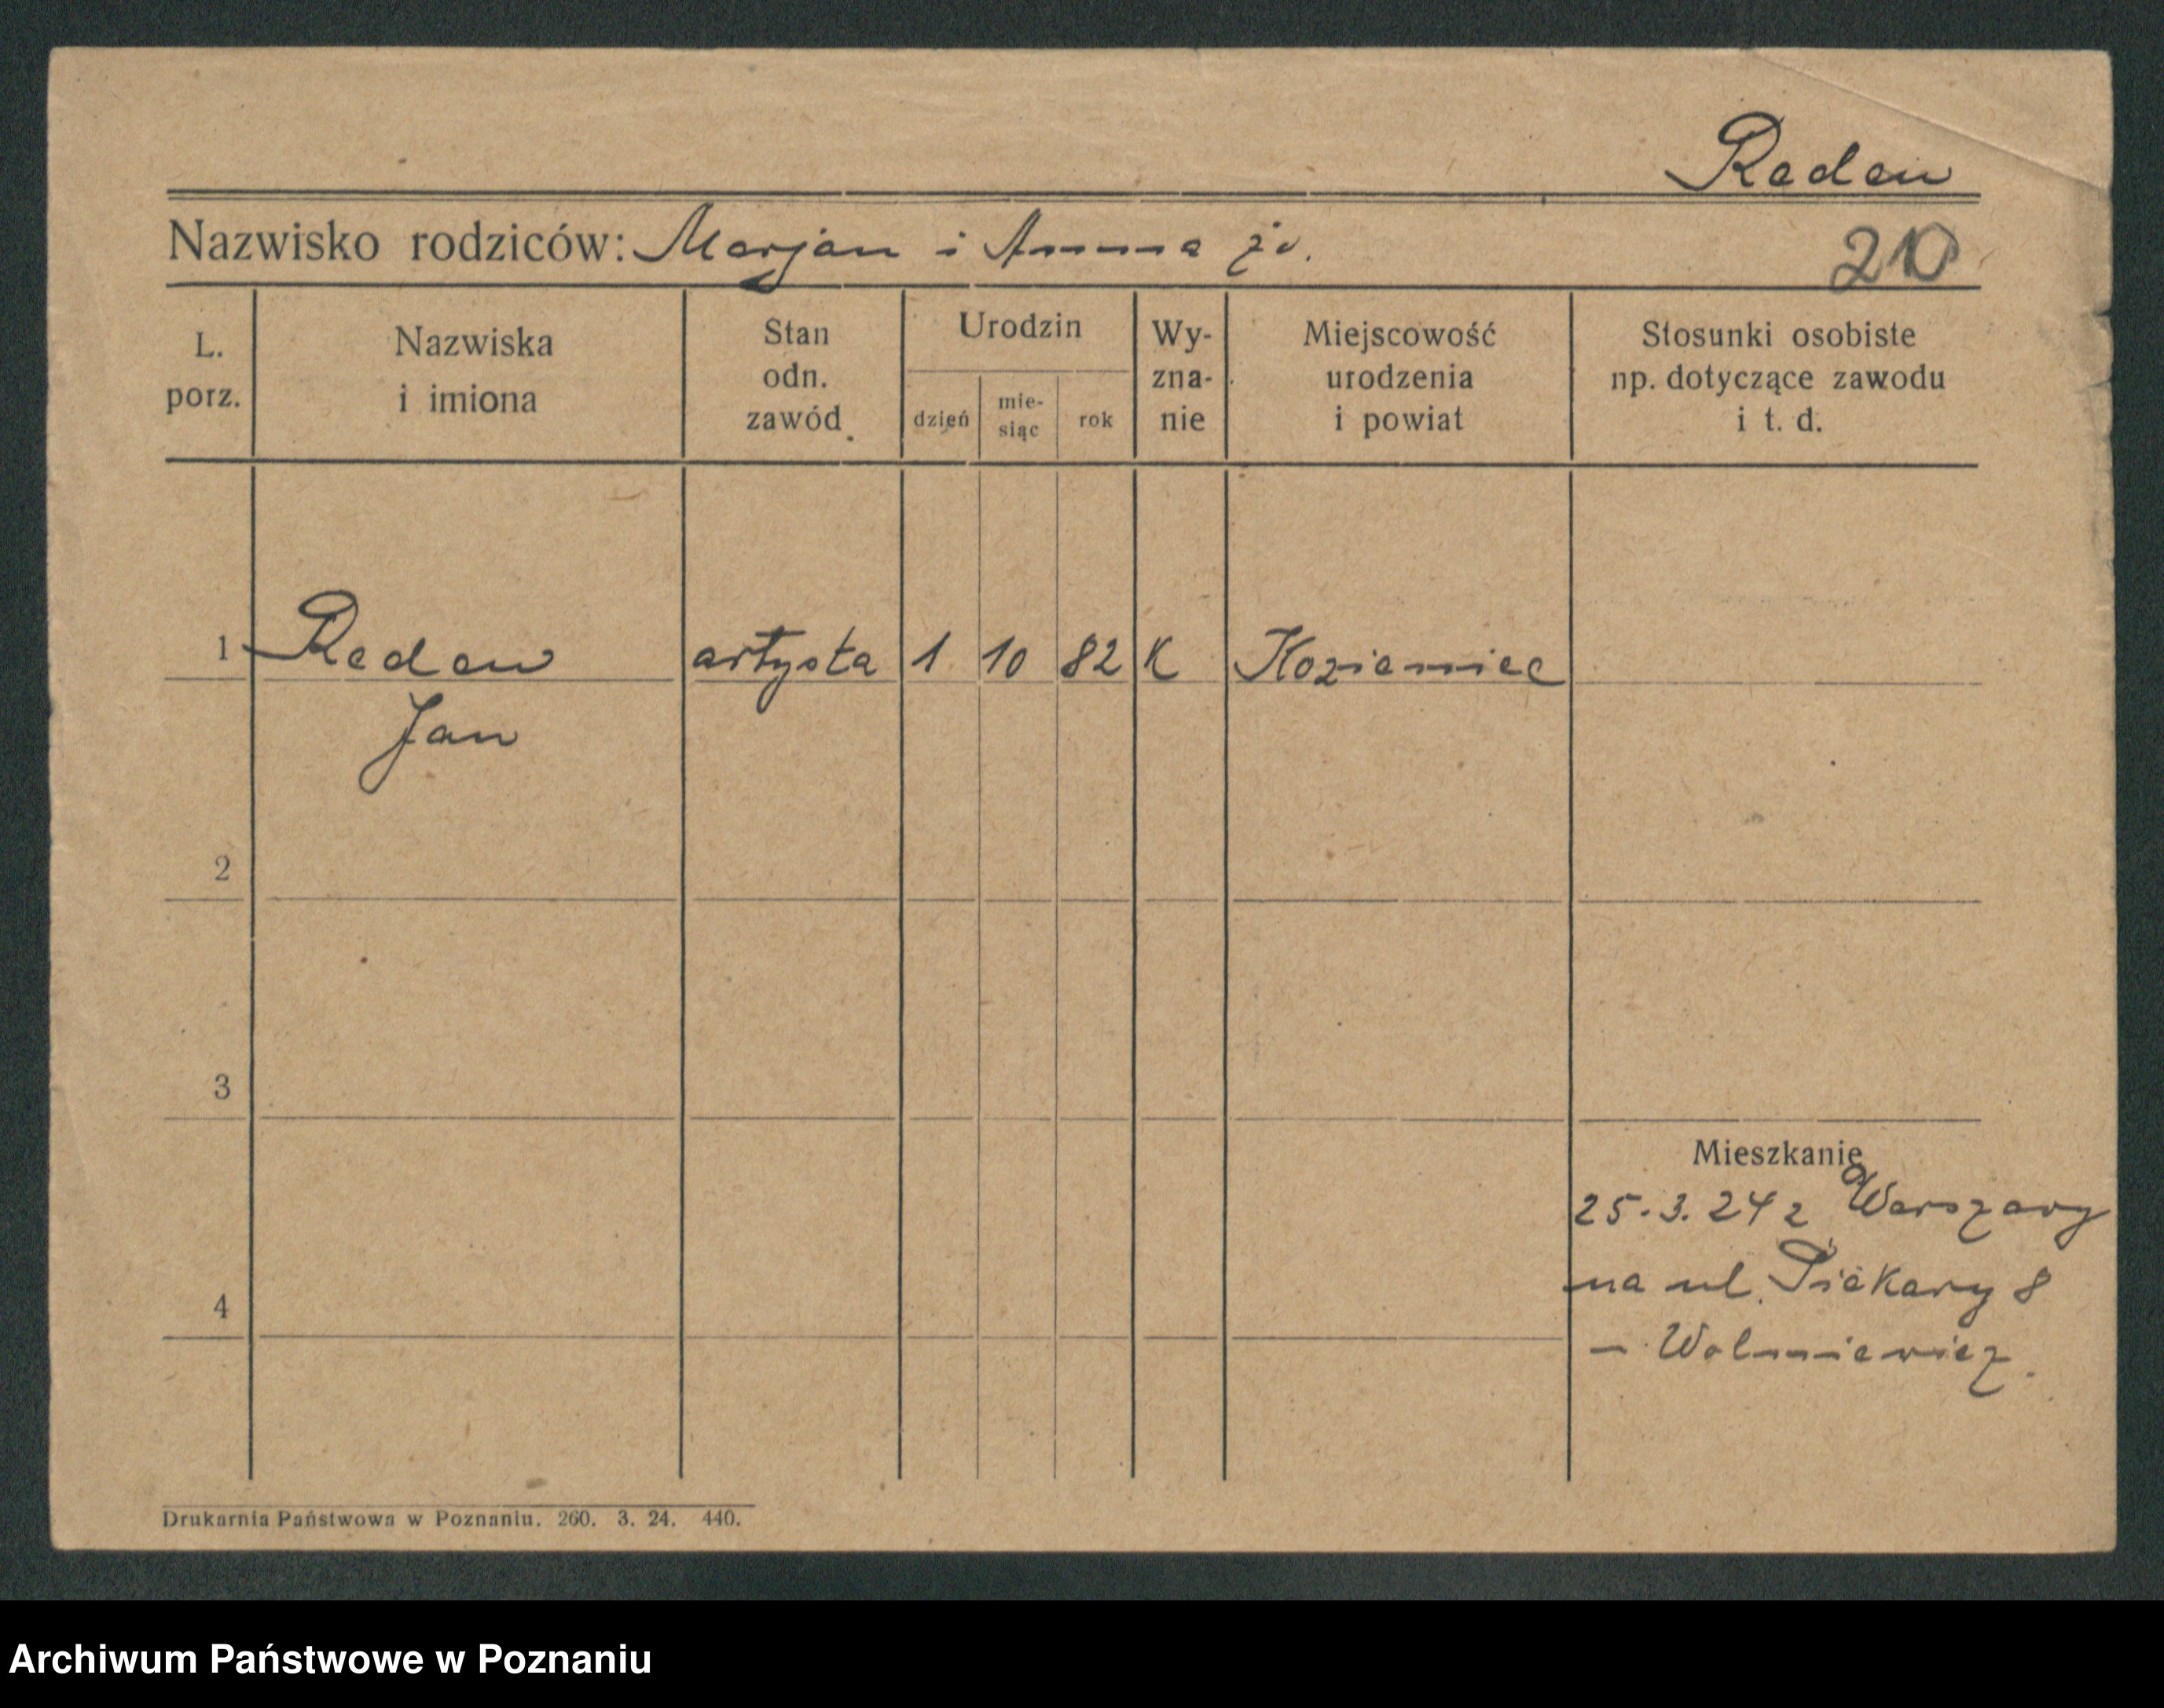 Reden
Nazwisko rodziców: Marjan i Anna żv.
210
L. porz.
Nazwiska i imiona
Stan odn. zawód
Urodzin
dzień
mie-siąc
rok
Wy-zna-nie
Miejscowość urodzenia i powiat
Stosunki osobiste np. dotyczące zawodu i t. d.
1 Reden artysta 1 10 82 K Koziemiec
Jan
2
3
Mieszkanie
25.3.24 z Warszawy
na ul. Piekary 8
4
Drukarnia Państwowa w Poznaniu. 260. 3. 24. 440.
Archiwum Państwowe w Poznaniu